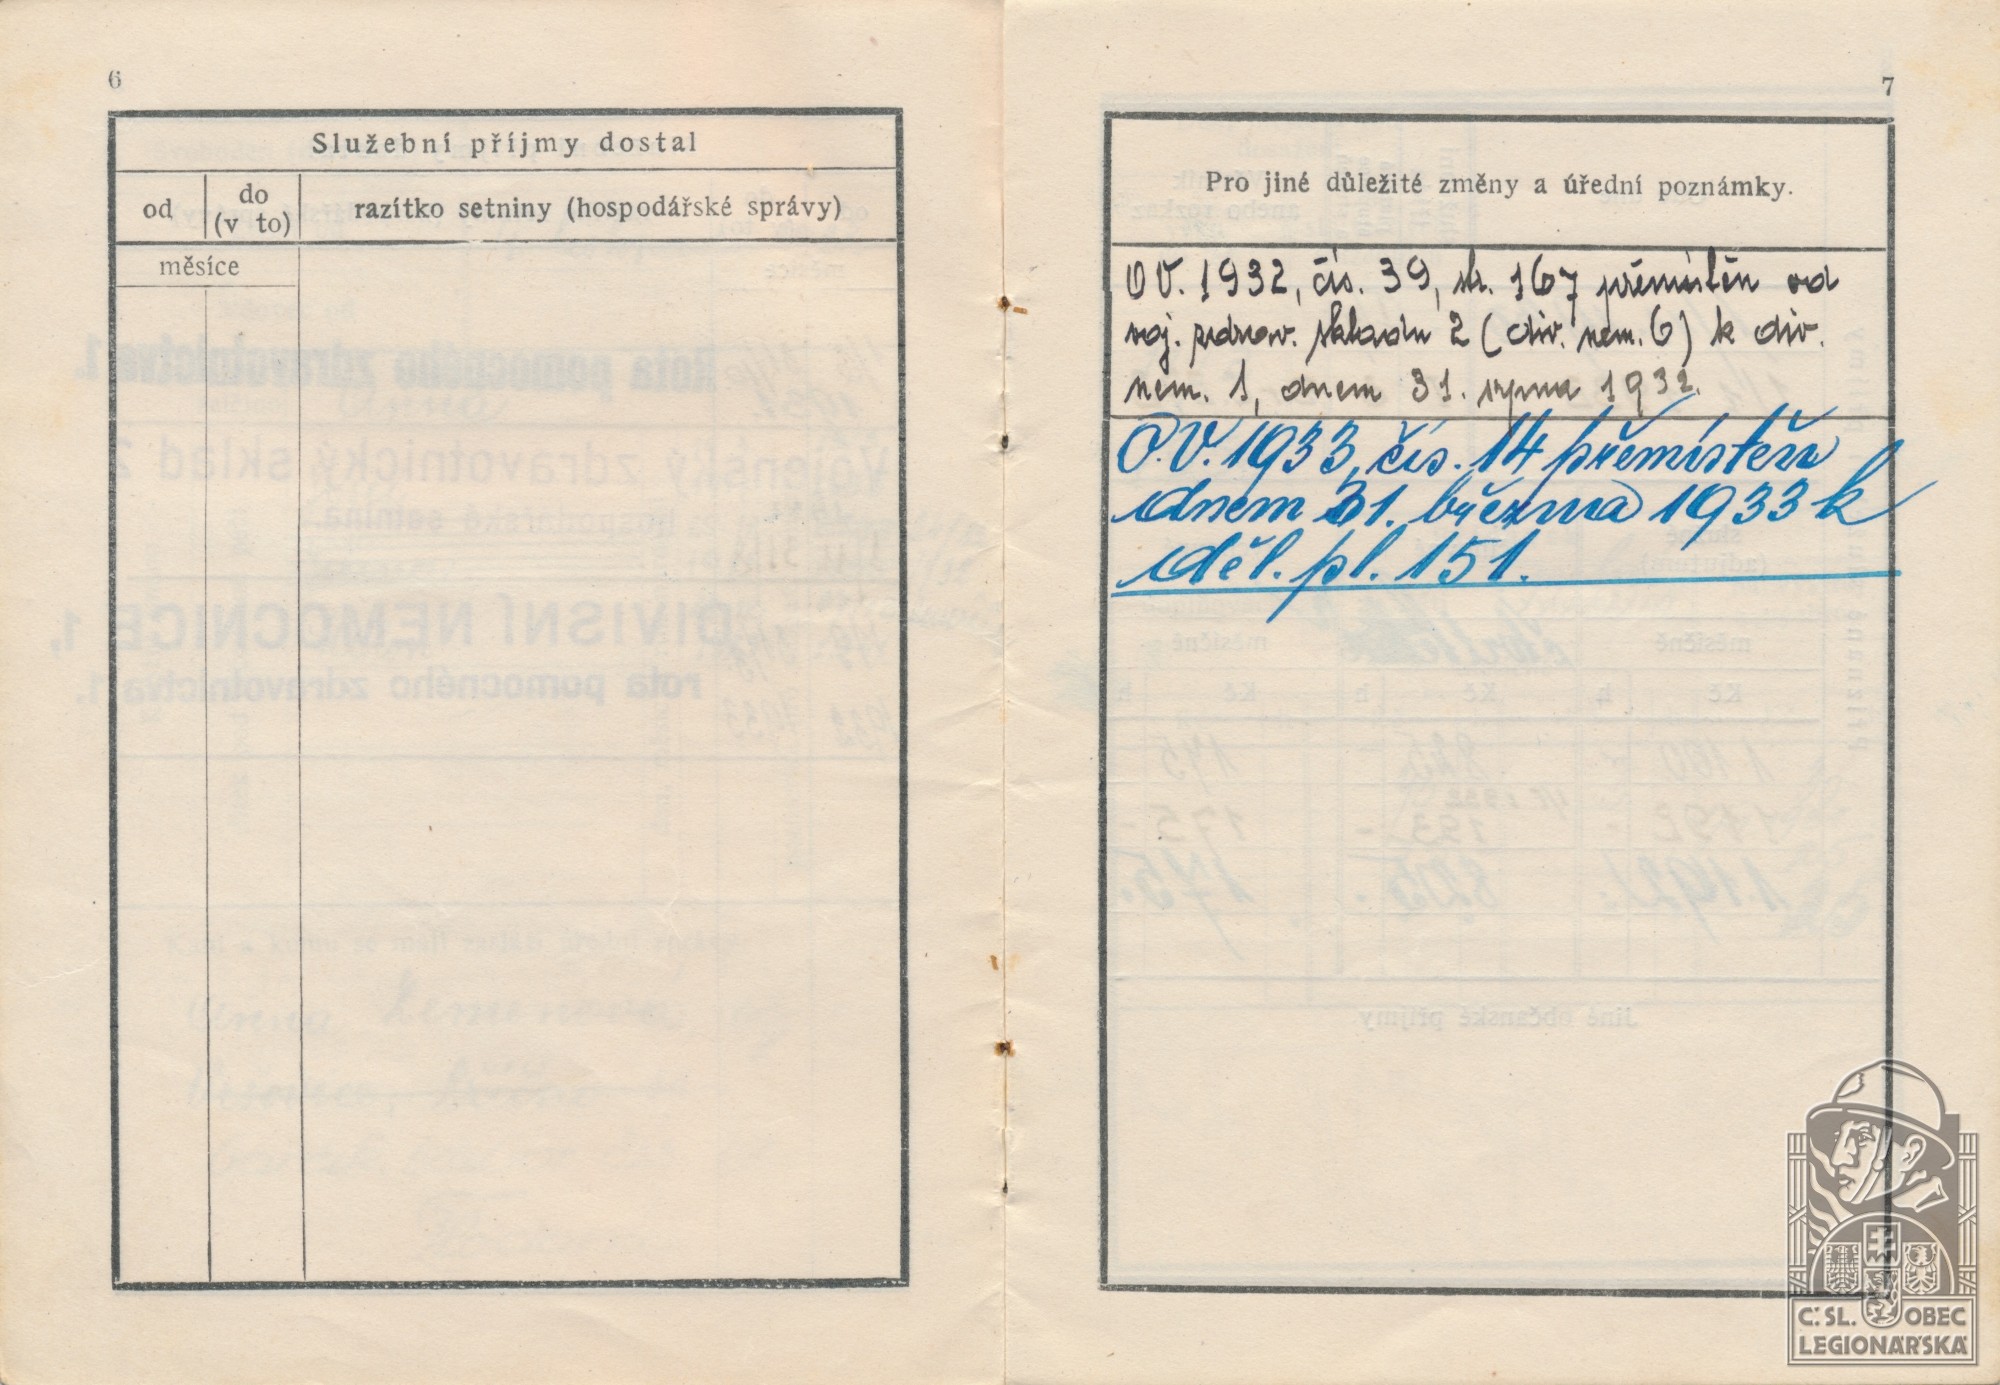 6
Služební příjmy dostal
od
do
(v to)
razítko setniny (hospodářské správy)
měsíce
7
Pro jiné důležité změny a úřední poznámky.
O V. 1932, čís. 39, str. 167 přemístěn od
voj. zdrav. skladu 2 (div. nem. 6) k div.
nem. 1, dnem 31. srpna 1932.
O.V. 1933, čís. 14 přemístěn
dnem 31. března 1933 k
děl. pl. 151.
Č. SL. OBEC
LEGIONÁŘSKÁ